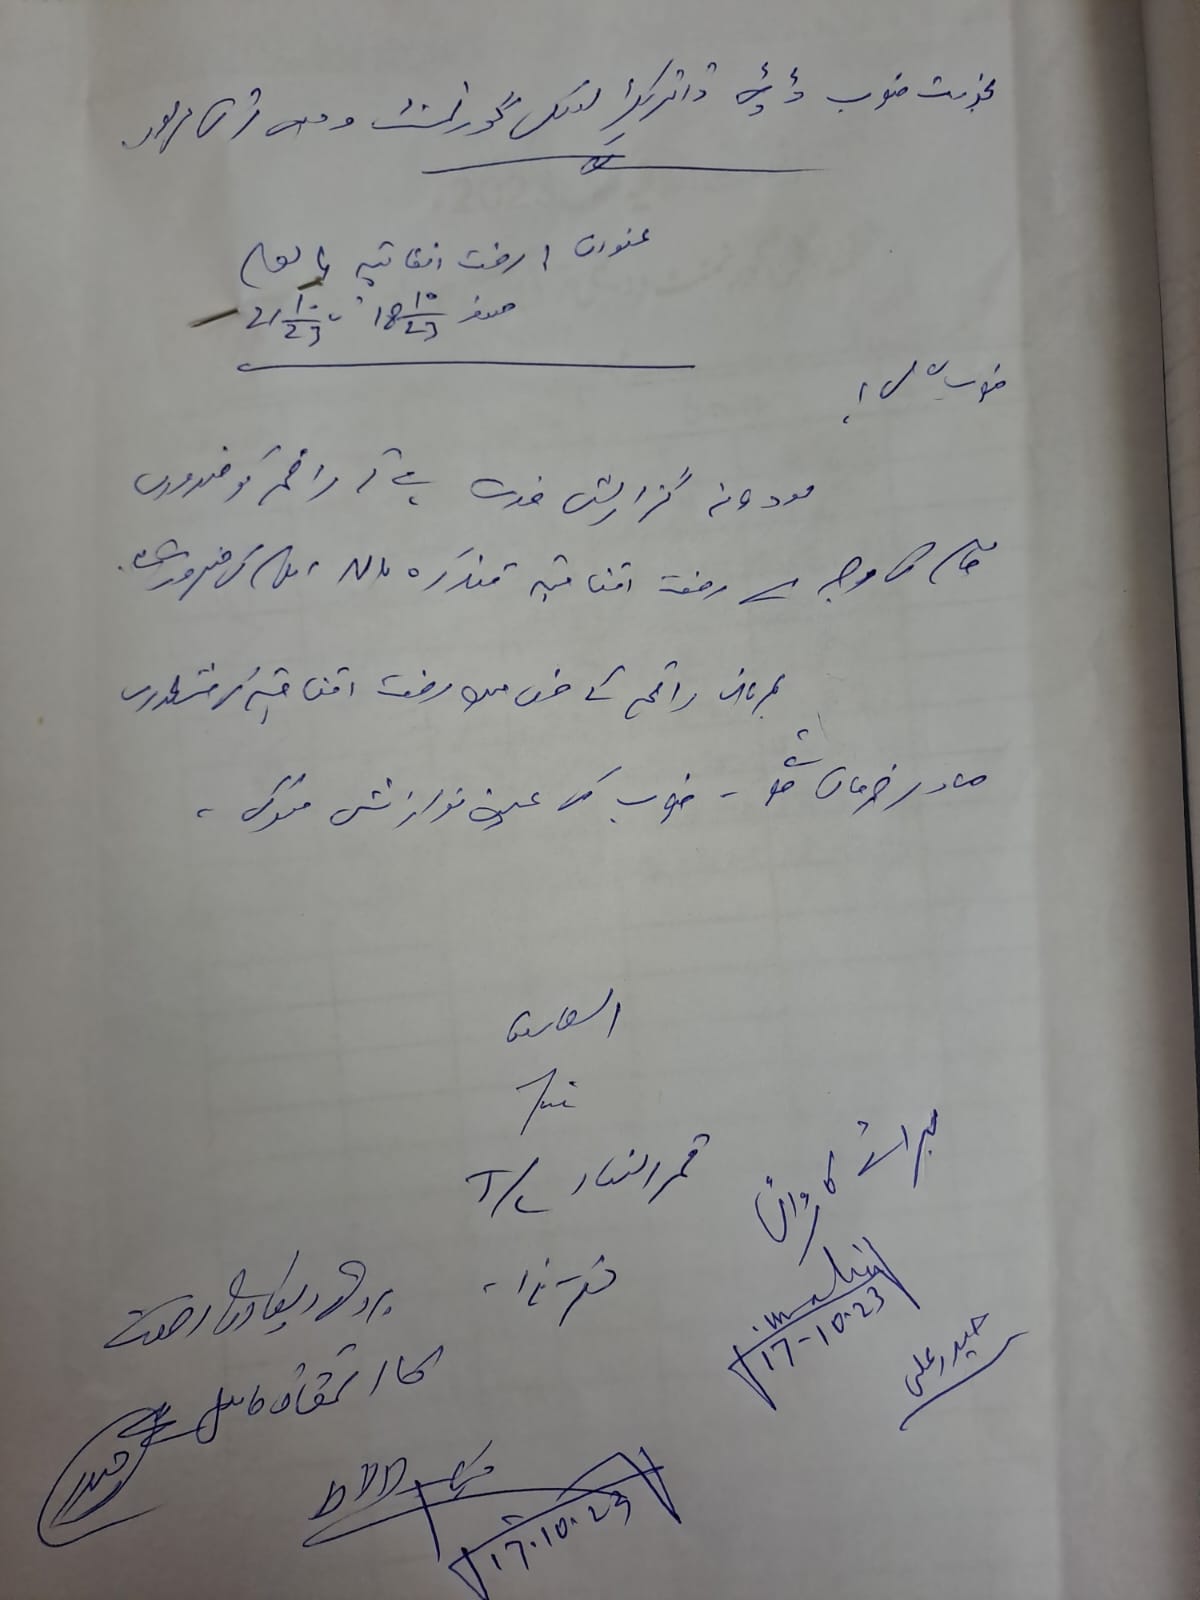 بخدمت جناب ڈپٹی ڈائریکٹر لوکل گورنمنٹ و دیہی ترقی
عنوان / رخصت اتفاقیہ ایام
18/10/23 تا 21/10/23
جناب عالی!
مودبانہ گزارش خدمت ہے کہ راقم کو ضروری
کام کی وجہ سے رخصت اتفاقیہ متذکرہ بالا ایام کی ضرورت ہے۔
مہربانی راقم کے حق میں رخصت اتفاقیہ کی منظوری
صادر فرمائی جائے۔ جناب کی عین نوازش ہوگی۔
العارض
قمر النساء
دفتر ہذا۔
برائے کاروائی
17-10-23
حیدر علی
بروئے ریکارڈ رخصت
کا استحقاق حاصل ہے
حیدر
17.10.23